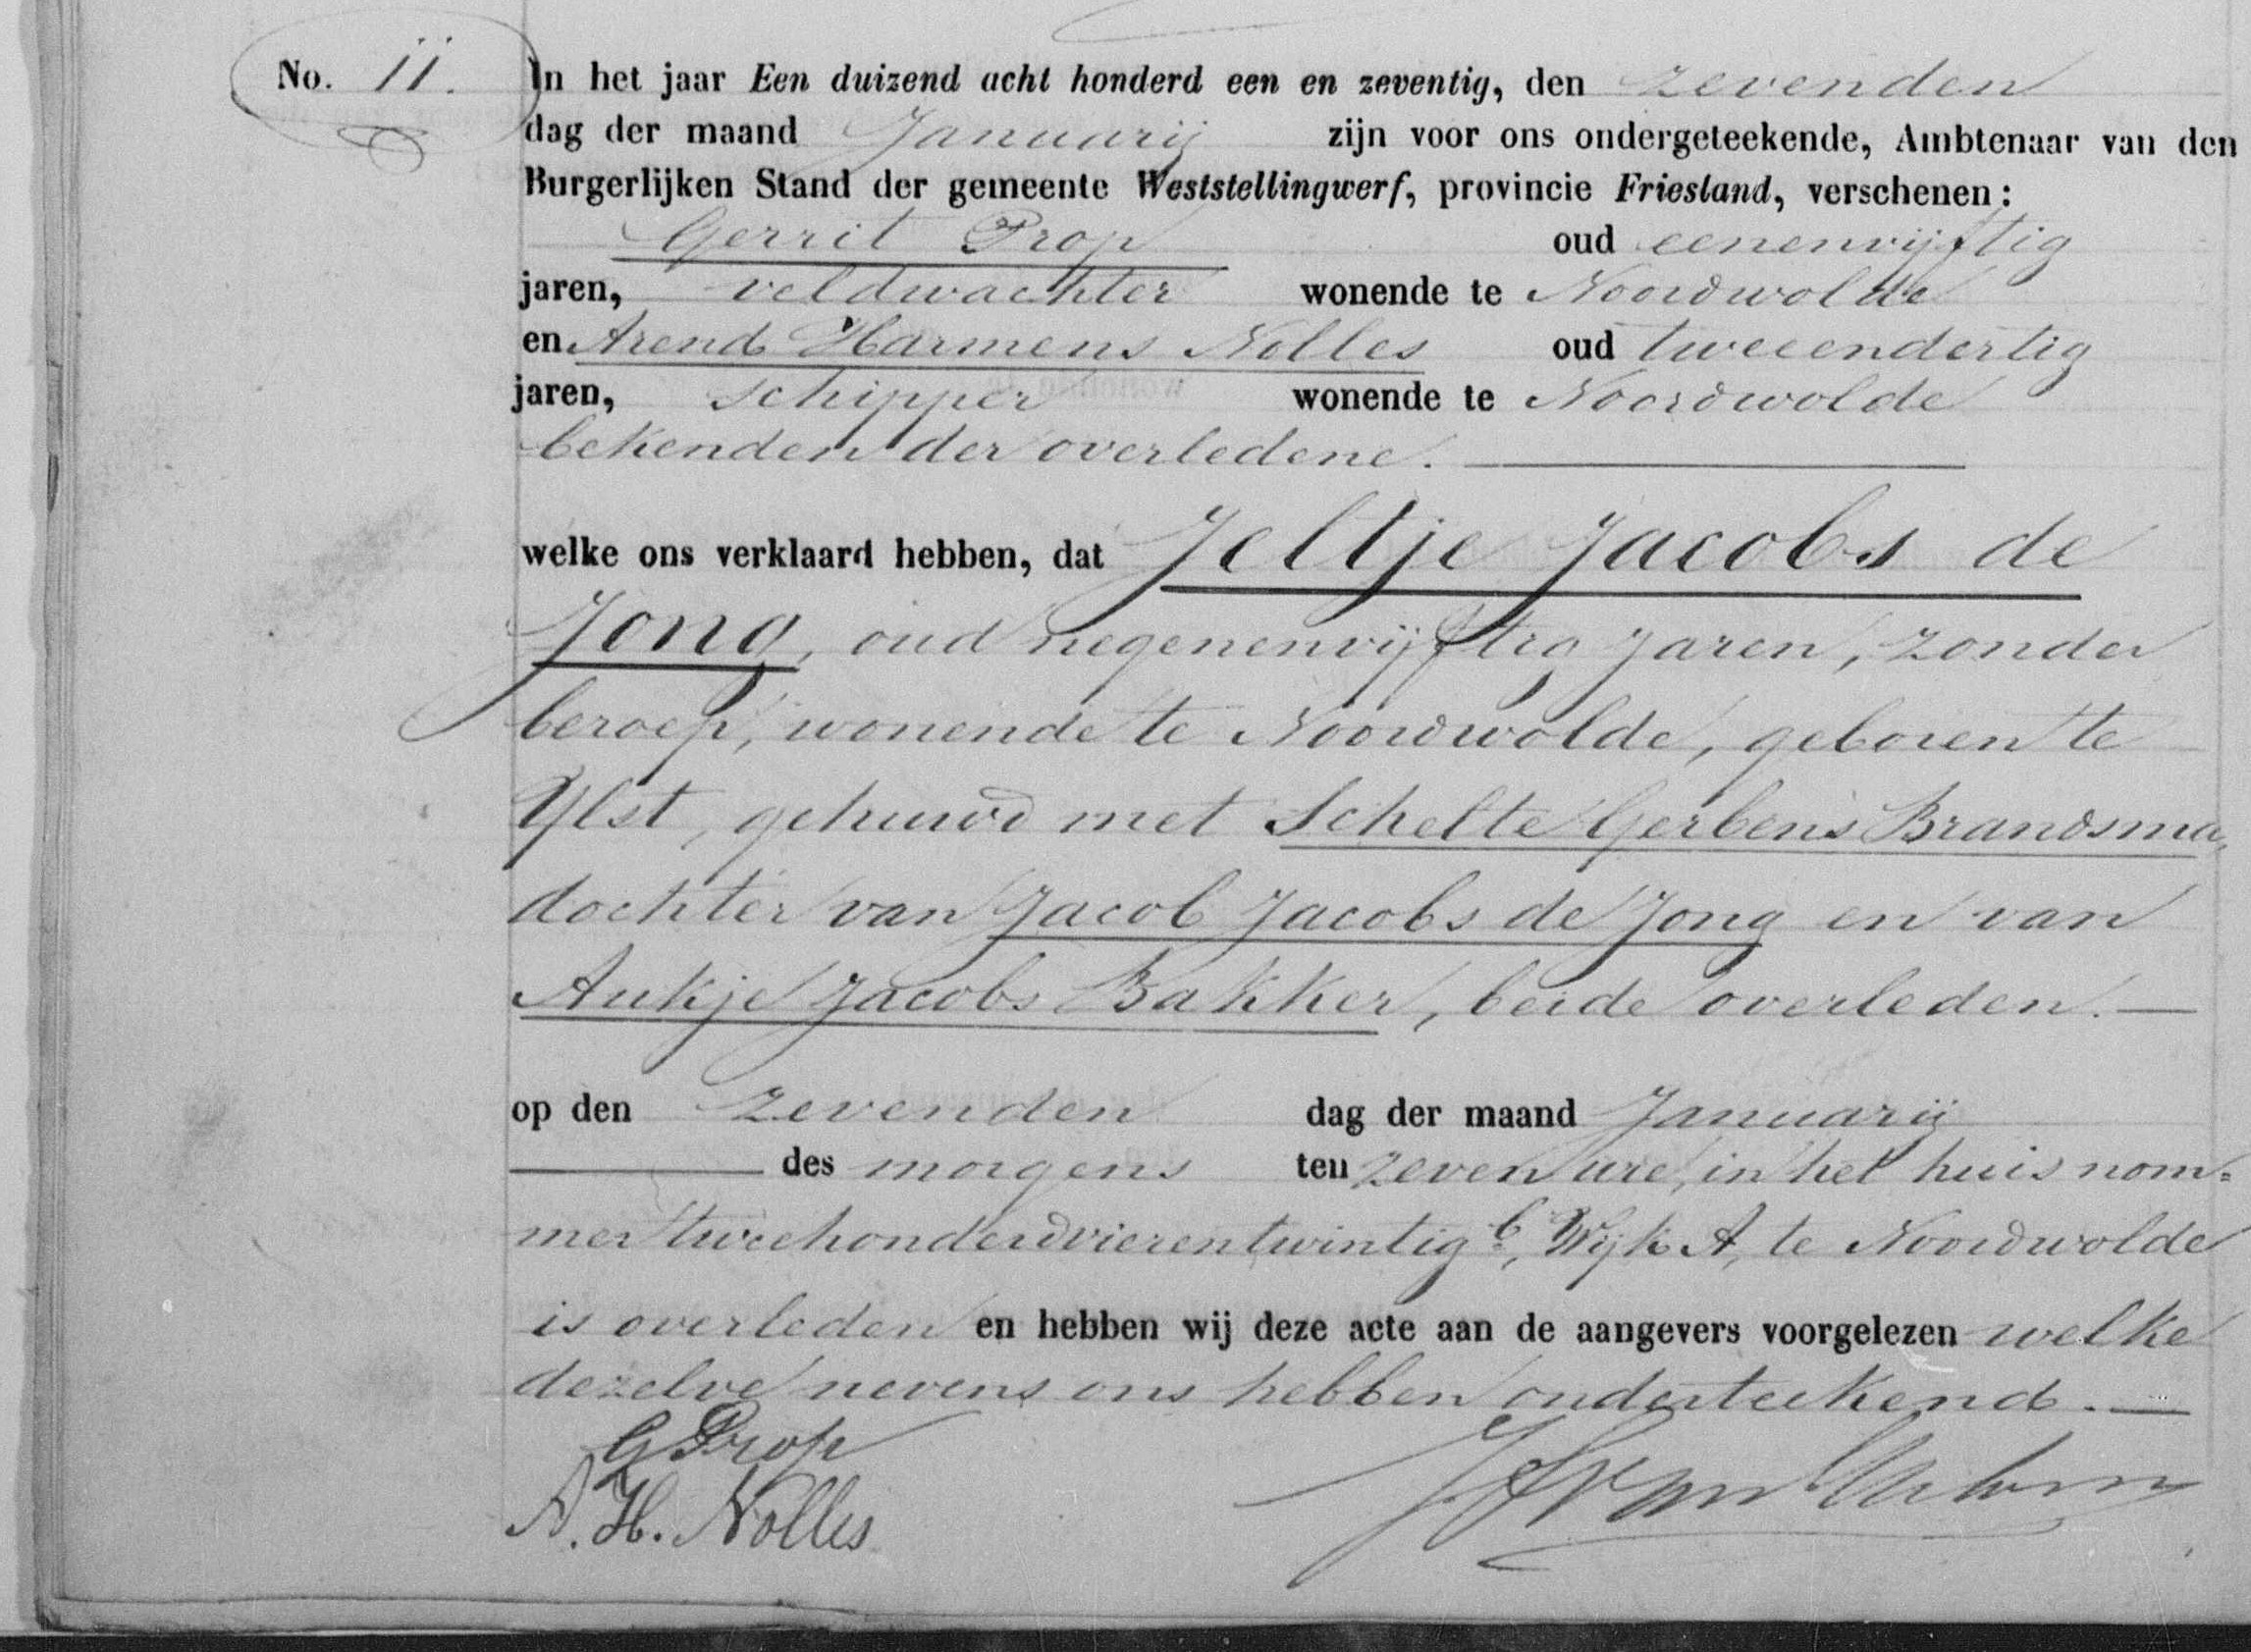 No. 11. In het jaar Een duizend acht honderd een en zeventig, den zevenden
dag der maand Januarij zijn voor ons ondergeteekende, Ambtenaar van den
Burgerlijken Stand der gemeente Weststellingwerf, provincie Friesland, verschenen:
Gerrit Prop oud eenenvijftig
jaren, veldwachter wonende te Noordwolde
en Arend Harmens Nolles oud tweeendertig
jaren, schipper wonende te Noordwolde
bekenden der overledene.
welke ons verklaard hebben, dat Jeltje Jacobs de
Jong, oud negenenvijftig jaren, zonder
beroep, wonende te Noordwolde, geboren te
Ylst, gehuwd met Schelte Gerbens Brandsma,
dochter van Jacob Jacobs de Jong en van
Aukje Jacobs Bakker, beide overleden.
op den zevenden dag der maand Januarij
des morgens ten zeven ure, in het huis nom=
mer tweehonderdvierentwintig b, Wijk A, te Noordwolde
is overleden en hebben wij deze acte aan de aangevers voorgelezen welke
dezelve nevens ons hebben onderteekend.
G Prop
A. H. Nolles